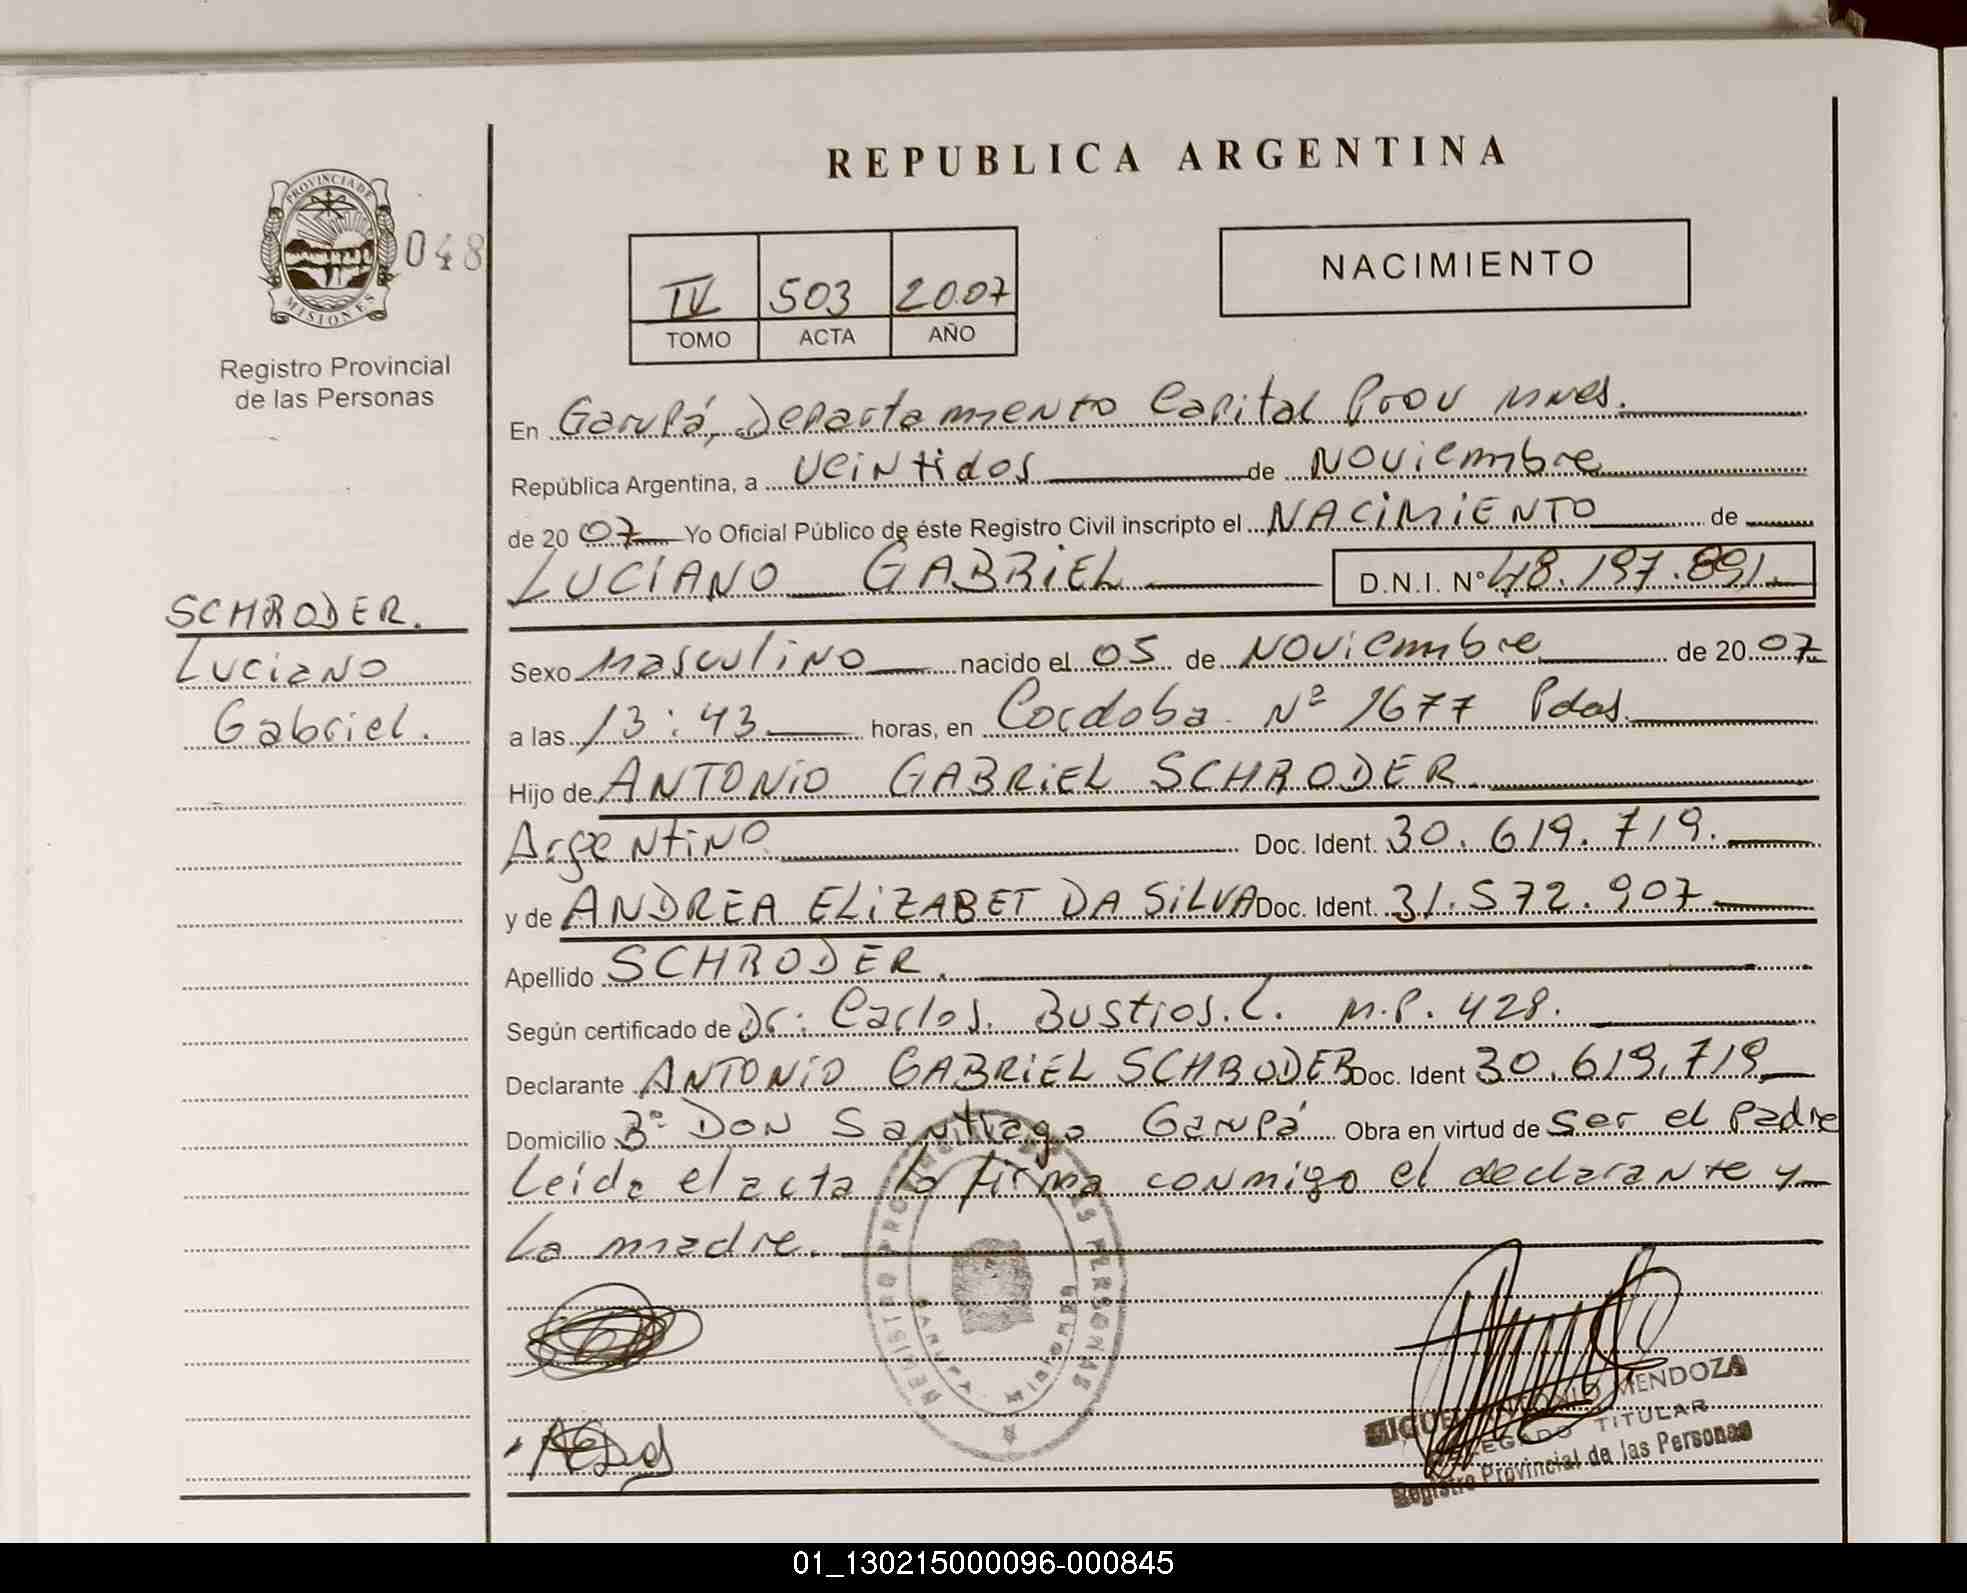 REPUBLICA ARGENTINA
PROVINCIA DE
MISIONES
048
Registro Provincial
de las Personas
IV 503 2007
TOMO ACTA AÑO
NACIMIENTO
En Garupá, Departamento Capital Prov Mnes.
República Argentina, a veintidos de Noviembre
de 2007 Yo Oficial Público de éste Registro Civil inscripto el NACIMIENTO de
LUCIANO GABRIEL D.N.I. Nº 48.197.891.
SCHRODER.
Luciano
Gabriel.
Sexo Masculino nacido el 05 de Noviembre de 2007
a las 13:43 horas, en Cordoba Nº 1677 Pdas.
Hijo de ANTONIO GABRIEL SCHRODER.
Argentino. Doc. Ident. 30.619.719.
y de ANDREA ELIZABET DA SILVA Doc. Ident. 31.572.907
Apellido SCHRODER.
Según certificado de Dr: Carlos. Bustios. C. M.P. 428.
Declarante ANTONIO GABRIEL SCHRODER Doc. Ident 30.619.719
Domicilio Bº DON Santiago Garupá Obra en virtud de ser el padre
Leída el acta la firma conmigo el declarante y
la madre.
REGISTRO PROVINCIAL DE LAS PERSONAS
GARUPA MISIONES
AEDS
MIGUEL ANTONIO MENDOZA
DELEGADO TITULAR
Registro Provincial de las Personas
01_130215000096-000845